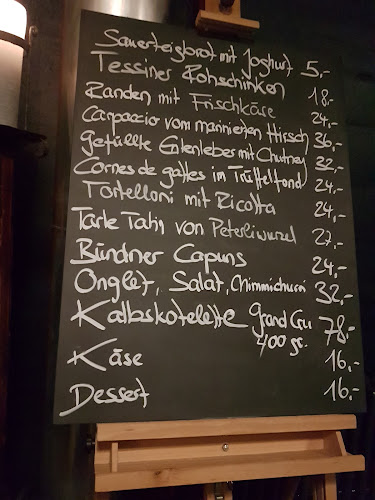 Sauerteigbrot mit Joghurt 5,-
Tessiner Rohschinken 18.-
Randen mit Frischkäse 24,-
Carpaccio vom marinierten Hirsch 36,-
Gefüllte Entenleber mit Chutney 32,-
Cornes de gattes im Trüffelfond 24,-
Tortelloni mit Ricotta 24,-
Tarte Tatin von Peterliwurzel 27,-
Bündner Capuns 24,-
Onglet, Salat, Chimmichurri 32,-
Kalbskotelette Grand Cru 78,-
400 gr.
Käse 16,-
Dessert 16.-